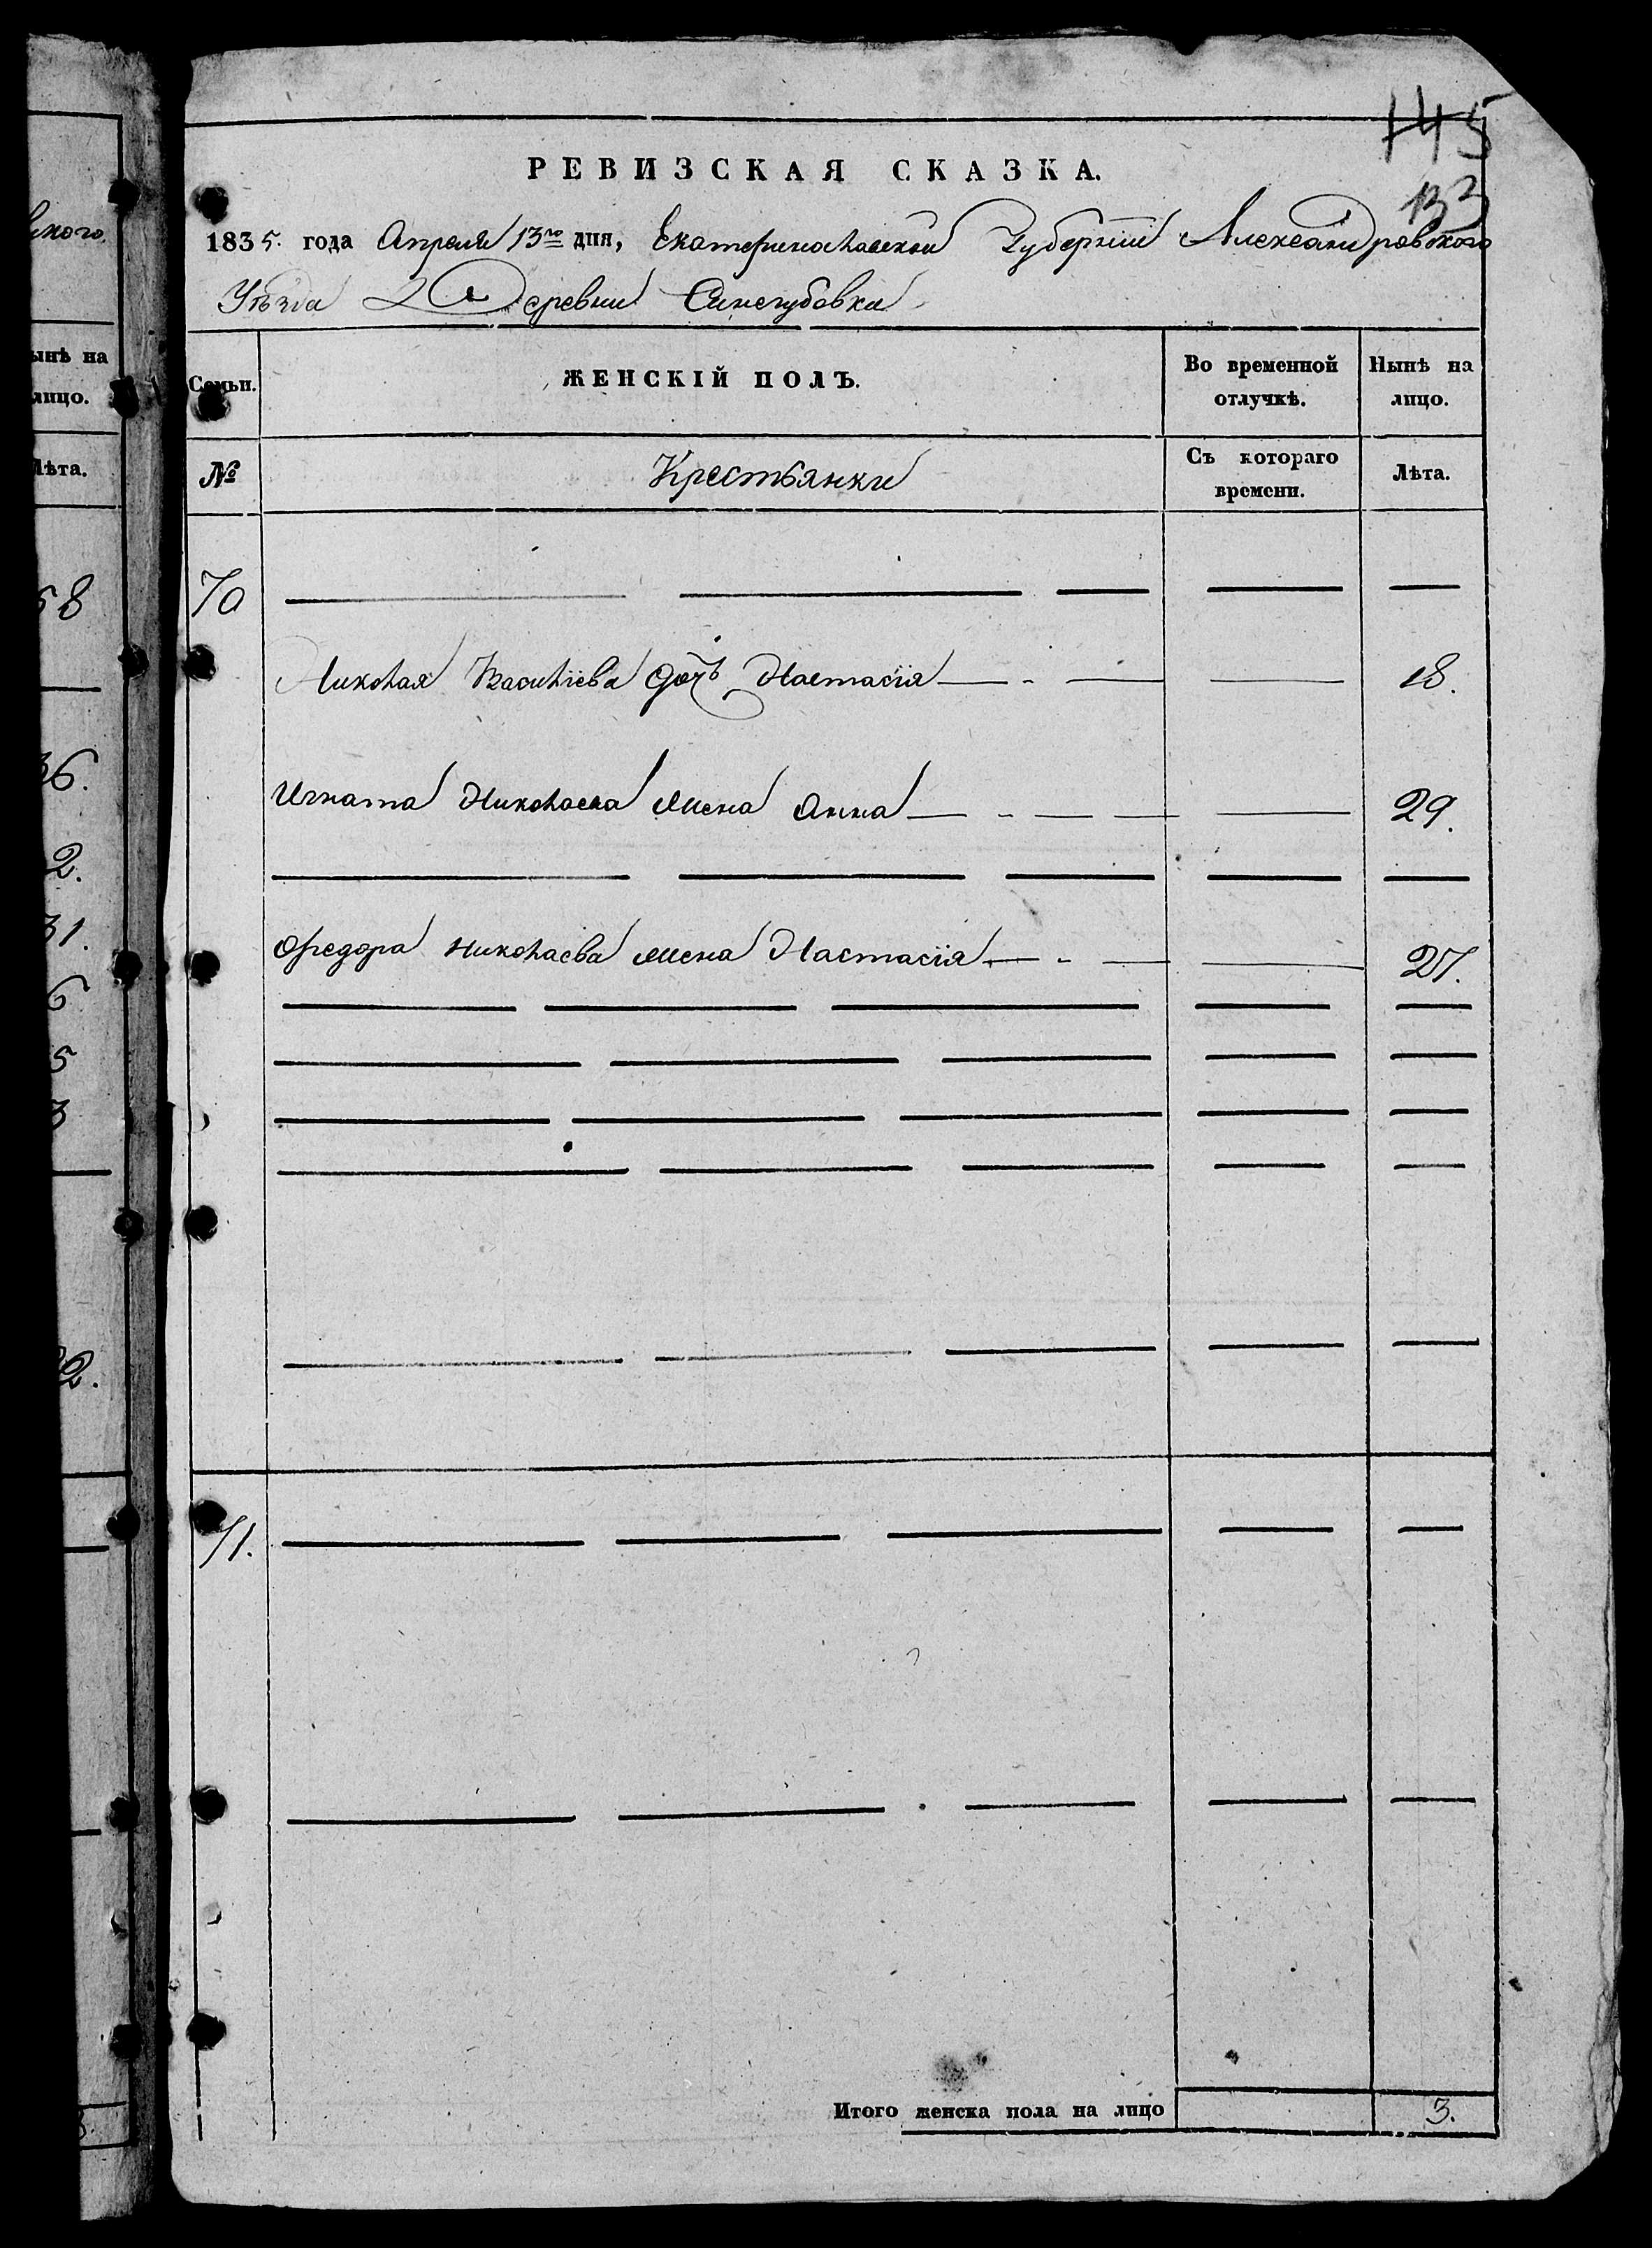 145
133
РЕВИЗСКАЯ СКАЗКА.
1835. года Апреля 13го дня, Екатеринославской Губернии Александровского
Уѣзда Деревни Синегубовки
Семьи. ЖЕНСКІЙ ПОЛЪ. Во временной отлучкѣ. Нынѣ на лицо.
№ Крестьянки Съ котораго времени. Лѣта.
70
Николая Василіева дочь Настасія 18.
Игната Николаева жена Анна 29.
Федора Николаева жена Настасія 27.
71.
Итого женска пола на лицо 3.